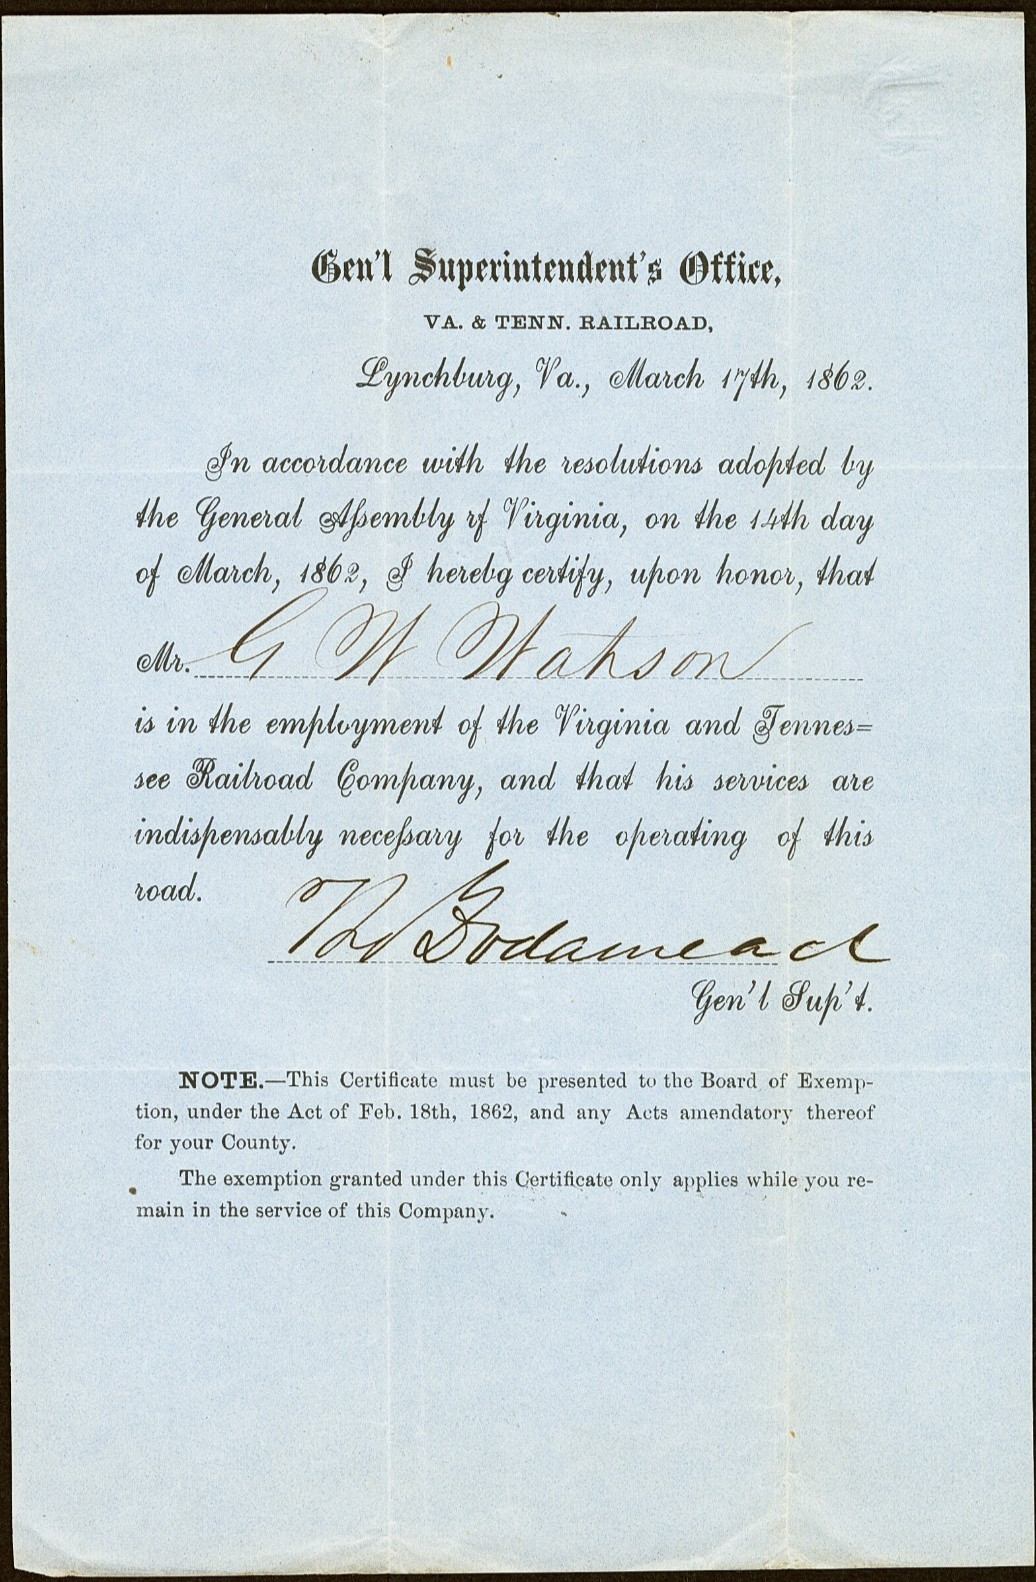 Gen'l Superintendent's Office,
VA. & TENN. RAILROAD,
Lynchburg, Va., March 17th, 1862.
In accordance with the resolutions adopted by
the General Aſsembly rf Virginia, on the 14th day
of March, 1862, I herebg certify, upon honor, that
Mr. G W Watson
is in the employment of the Virginia and Tennes=
see Railroad Company, and that his services are
indispensably neceſsary for the operating of this
road.
Tho Dodamead
Gen'l Sup't.
NOTE.—This Certificate must be presented to the Board of Exemp-
tion, under the Act of Feb. 18th, 1862, and any Acts amendatory thereof
for your County.
The exemption granted under this Certificate only applies while you re-
main in the service of this Company.